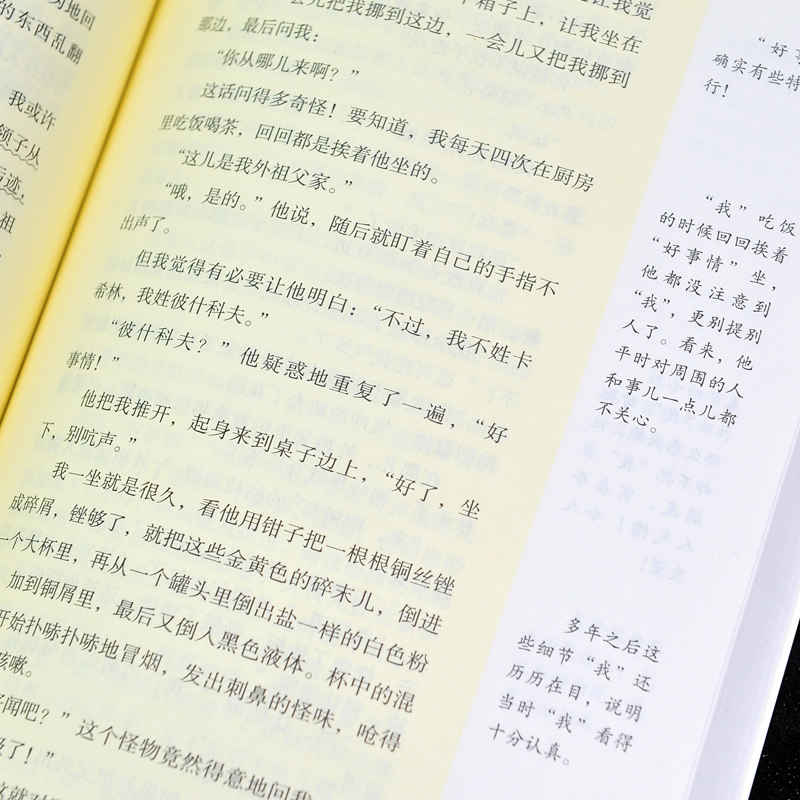 地回
的东西乱翻
我或许
领子从
祖
箱子上，让我坐在
会儿把我挪到这边，一会儿又把我挪到
那边，最后问我：
“你从哪儿来啊？”
这话问得多奇怪！要知道，我每天四次在厨房
里吃饭喝茶，回回都是挨着他坐的。
“这儿是我外祖父家。”
“哦，是的。”他说，随后就盯着自己的手指不
出声了。
但我觉得有必要让他明白：“不过，我不姓卡
希林，我姓彼什科夫。”
“彼什科夫？”他疑惑地重复了一遍，“好
事情！”
他把我推开，起身来到桌子边上，“好了，坐
下，别吭声。”
我一坐就是很久，看他用钳子把一根根铜丝锉
成碎屑，锉够了，就把这些金黄色的碎末儿，倒进
一个大杯里，再从一个罐头里倒出盐一样的白色粉
加到铜屑里，最后又倒人黑色液体。杯中的混
开始扑哧扑哧地冒烟，发出刺鼻的怪味，呛得
咳嗽。
闻吧？”这个怪物竟然得意地问我
了！”
这就对
“好事
确实有些特
行！
“我”吃饭
的时候回回挨着
“好事情”坐，
他都没注意到
“我”，更别提别
人了。看来，他
平时对周围的人
和事儿一点儿都
不关心。
多年之后这
些细节“我”还
历历在目，说明
当时“我”看得
十分认真。